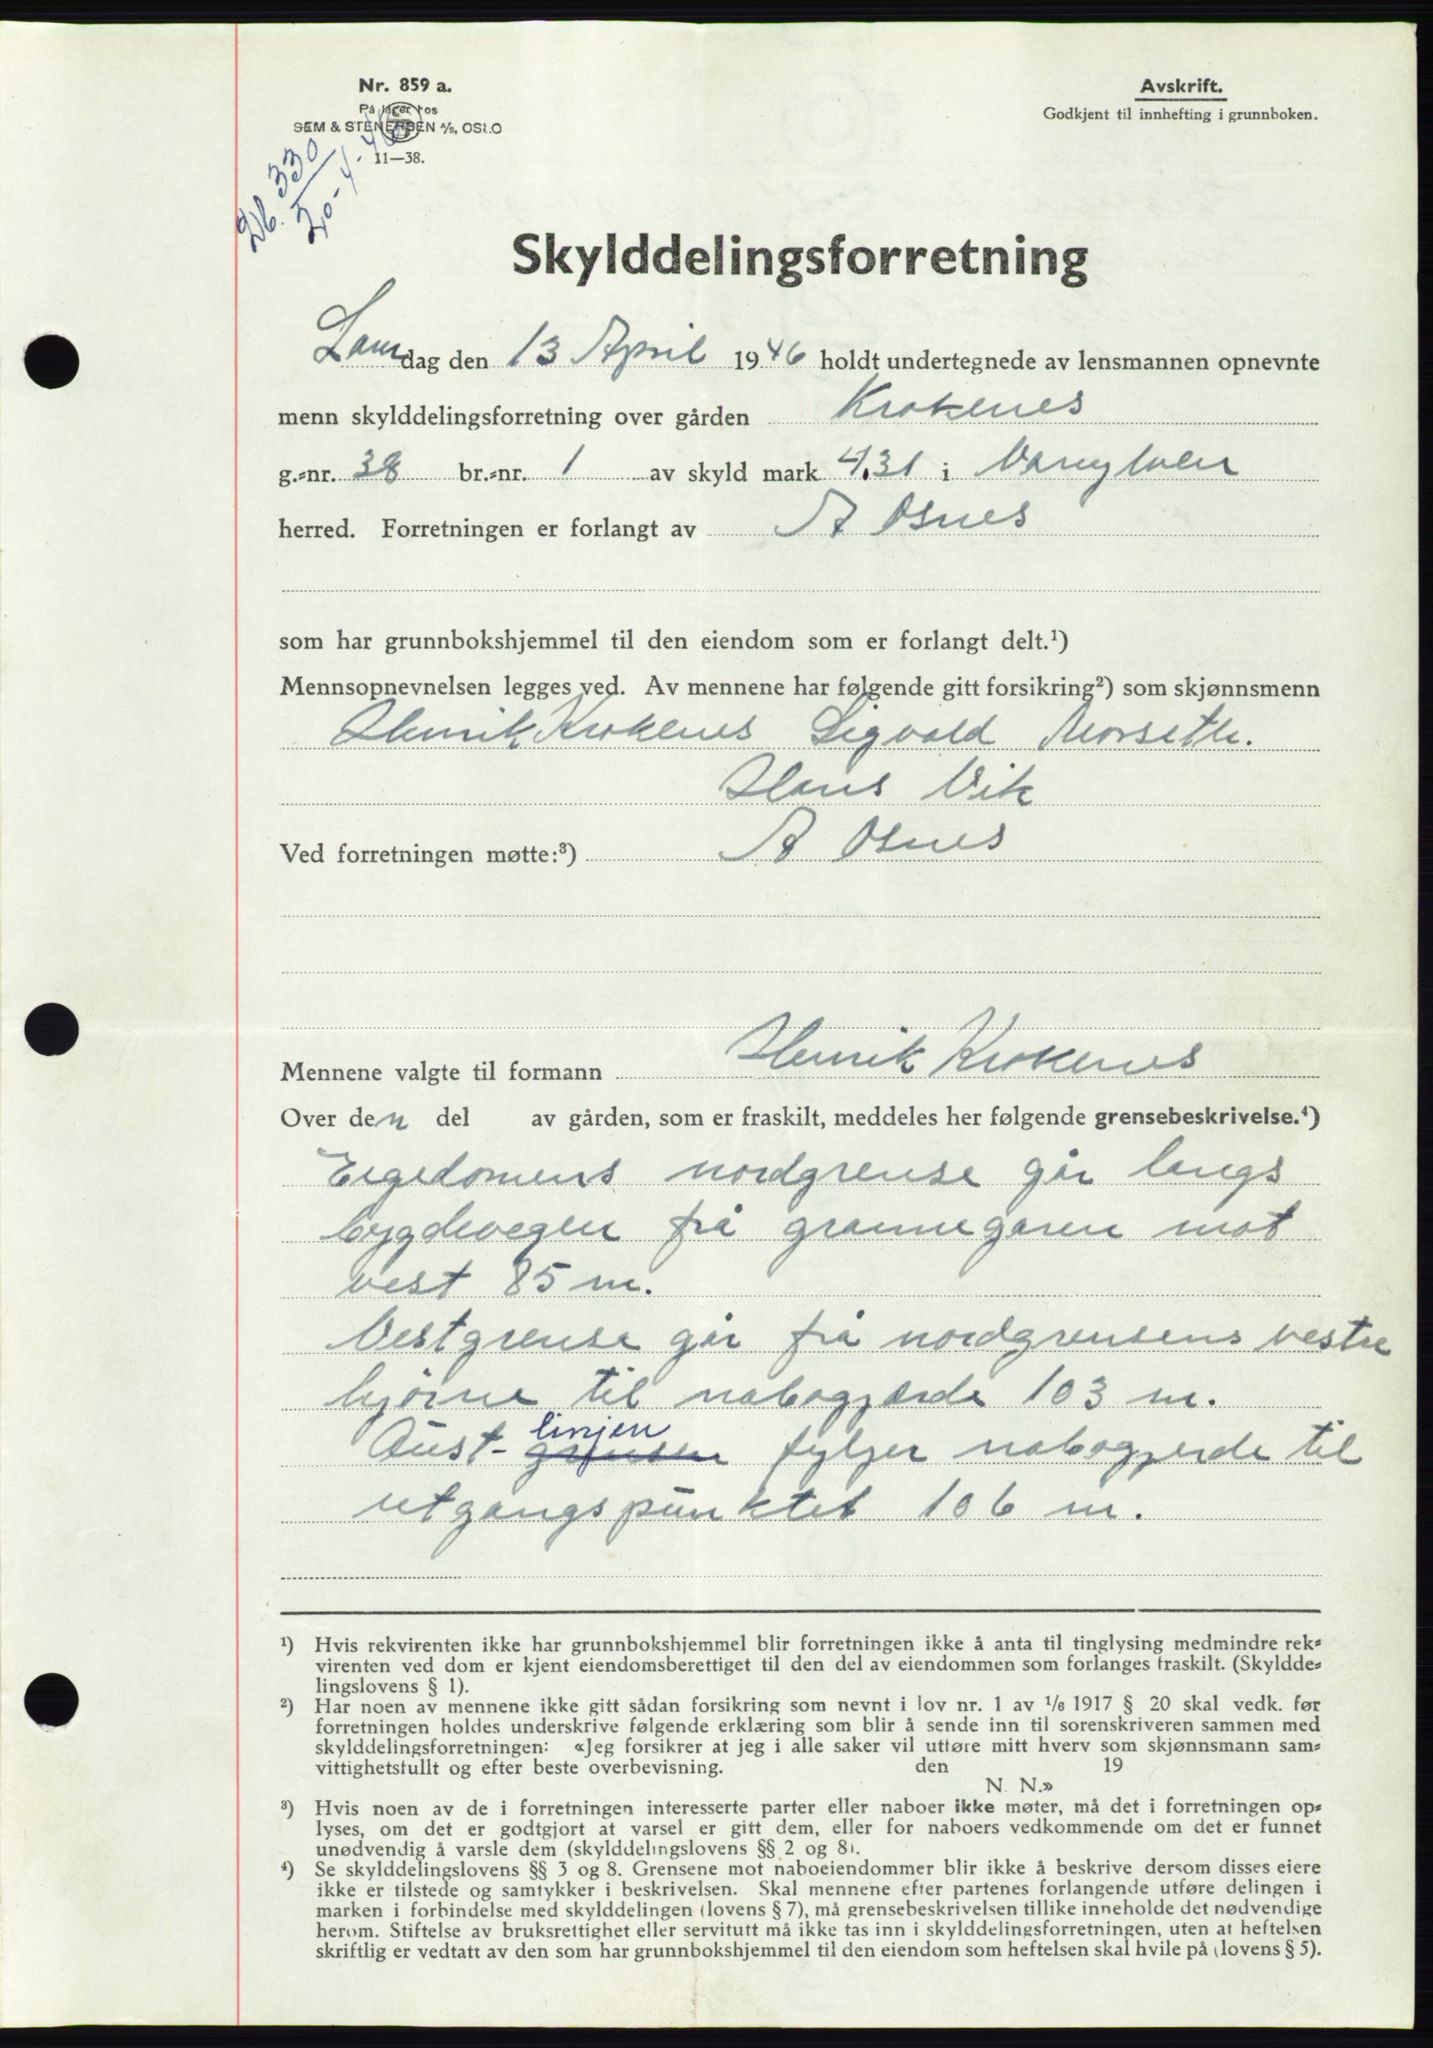 Nr. 859 a.
På lager hos
SEM & STENERSEN A/S, OSLO
11—38.
Avskrift.
Godkjent til innhefting i grunnboken.
Db. 330
20-4-46
Skylddelingsforretning
Laurdag den 13 April 1946 holdt undertegnede av lensmannen opnevnte
menn skylddelingsforretning over gården Krokenes
g.=nr. 38 br.=nr. 1 av skyld mark 4.31 i Vanylven
herred. Forretningen er forlangt av A Osnes
som har grunnbokshjemmel til den eiendom som er forlangt delt.¹)
Mennsopnevnelsen legges ved. Av mennene har følgende gitt forsikring²) som skjønnsmenn
Henrik Krokenes Sigvald Norseth.
Hans Vik
Ved forretningen møtte:³) A Osnes
Mennene valgte til formann Henrik Krokenes
Over den del av gården, som er fraskilt, meddeles her følgende grensebeskrivelse.⁴)
Eigedomens nordgrense går langs
bygdevegen frå grannegaren mot
vest 85 m.
Vestgrense går frå nordgrensens vestre
hjörne til nabogjærde 103 m.
linjen
Aust- grensen fyljer nabogjerde til
utgangspunktet 106 m.
¹) Hvis rekvirenten ikke har grunnbokshjemmel blir forretningen ikke å anta til tinglysing medmindre rek=
virenten ved dom er kjent eiendomsberettiget til den del av eiendommen som forlanges fraskilt. (Skyldde=
lingslovens § 1).
²) Har noen av mennene ikke gitt sådan forsikring som nevnt i lov nr. 1 av ¹/₆ 1917 § 20 skal vedk. før
forretningen holdes underskrive følgende erklæring som blir å sende inn til sorenskriveren sammen med
skylddelingsforretningen: «Jeg forsikrer at jeg i alle saker vil utføre mitt hverv som skjønnsmann sam=
vittighetsfullt og efter beste overbevisning. den 19
N. N.»
³) Hvis noen av de i forretningen interesserte parter eller naboer ikke møter, må det i forretningen op=
lyses, om det er godtgjort at varsel er gitt dem, eller for naboers vedkommende om det er funnet
unødvendig å varsle dem (skylddelingslovens §§ 2 og 8).
⁴) Se skylddelingslovens §§ 3 og 8. Grensene mot naboeiendommer blir ikke å beskrive dersom disses eiere
ikke er tilstede og samtykker i beskrivelsen. Skal mennene efter partenes forlangende utføre delingen i
marken i forbindelse med skylddelingen (lovens § 7), må grensebeskrivelsen tillike inneholde det nødvendige
herom. Stiftelse av bruksrettighet eller servitutt må ikke tas inn i skylddelingsforretningen, uten at heftelsen
skriftlig er vedtatt av den som har grunnbokshjemmel til den eiendom som heftelsen skal hvile på (lovens § 5).